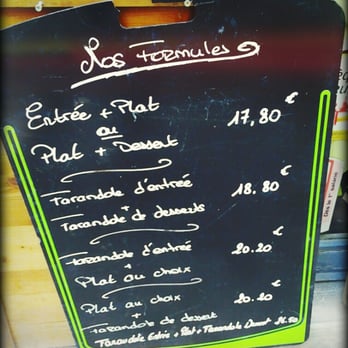 Nos Formules
Entrée + Plat
ou
17,80 €
Plat + Dessert
Farandole d'entrée
+
18.80 €
Farandole de desserts
Farandole d'entrée
+
20.20 €
Plat au choix
Plat au choix
+
20.20 €
Farandole de dessert
Farandole Entrée + Plat + Farandole Dessert